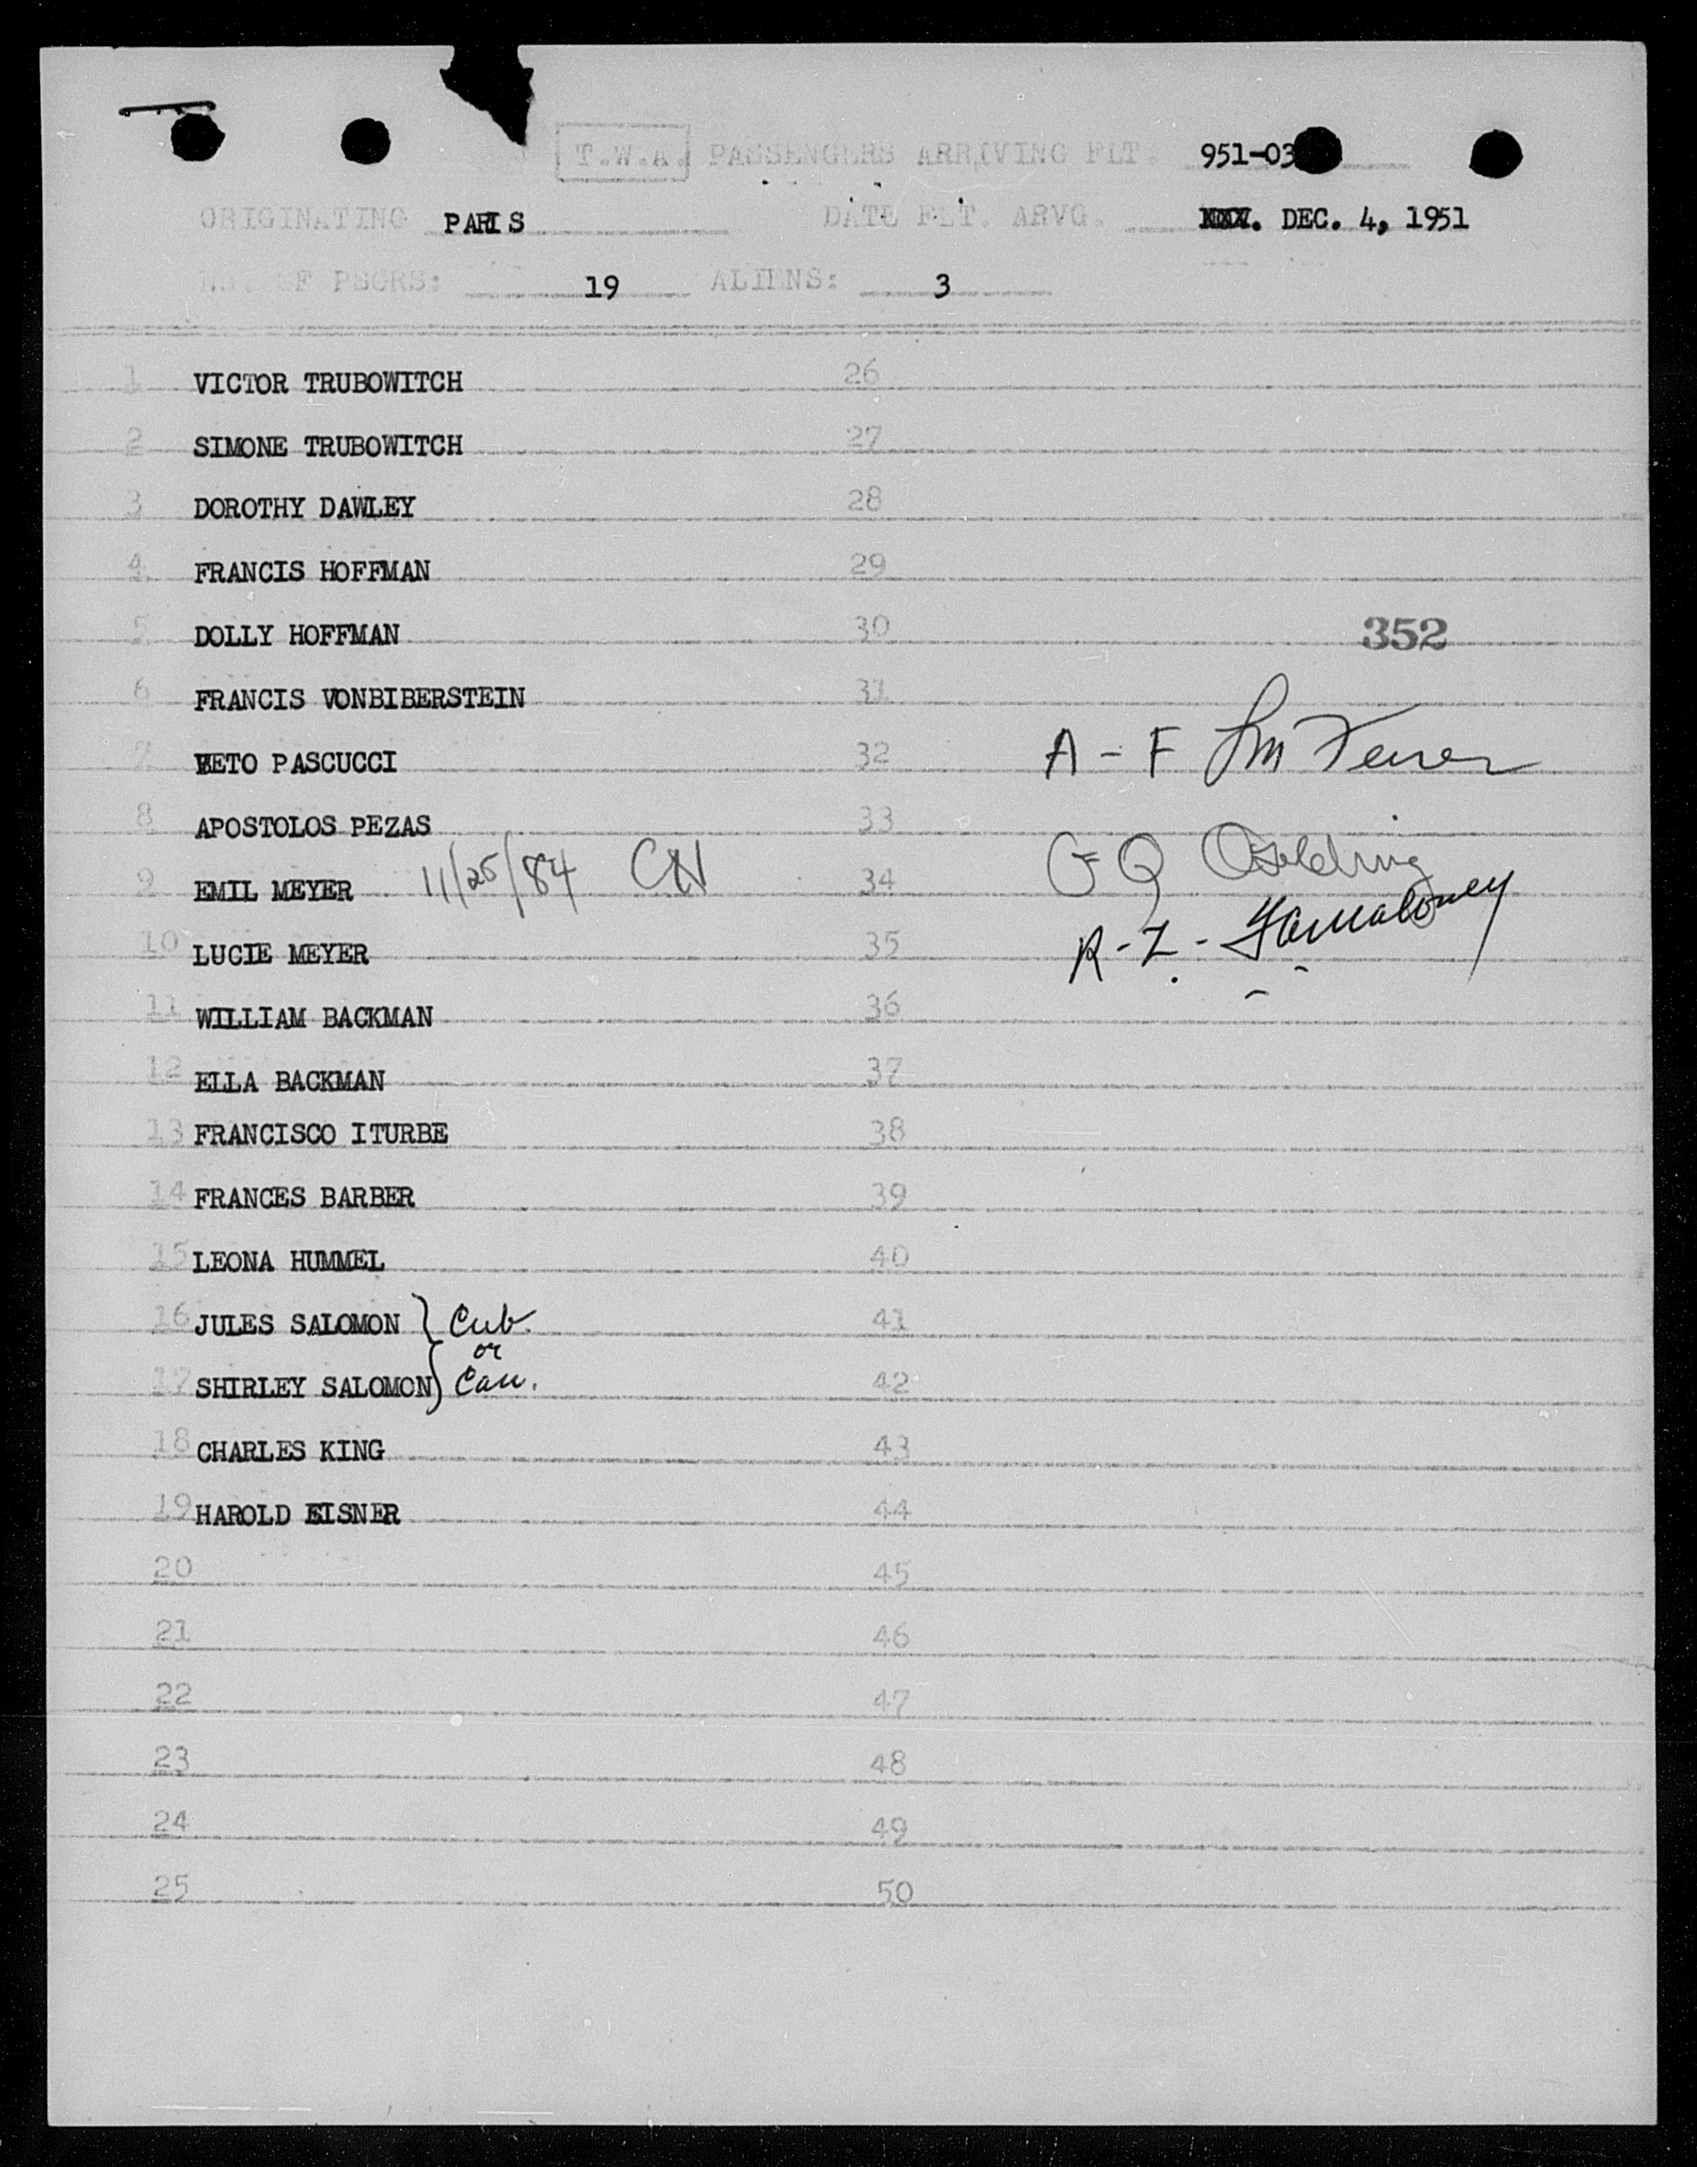 T.W.A. PASSENGERS ARRIVING FLT. 951-03
ORIGINATING PARIS DATE FLT. ARVG. DEC. 4, 1951
NO. OF PSGRS: 19 ALIENS: 3
1 VICTOR TRUBOWITCH 26
2 SIMONE TRUBOWITCH 27
3 DOROTHY DAWLEY 28
4 FRANCIS HOFFMAN 29
5 DOLLY HOFFMAN 30
352
6 FRANCIS VONBIBERSTEIN 31
7 PASCUCCI 32
A - F
8 APOSTOLOS PEZAS 33
9 EMIL MEYER 11/25/84 CN 34
G Q Golding
10 LUCIE MEYER 35
R - Z -
11 WILLIAM BACKMAN 36
12 ELLA BACKMAN 37
13 FRANCISCO ITURBE 38
14 FRANCES BARBER 39
15 LEONA HUMMEL 40
16 JULES SALOMON } Cub. 41
or
17 SHIRLEY SALOMON } Can. 42
18 CHARLES KING 43
19 HAROLD EISNER 44
20 45
21 46
22 47
23 48
24 49
25 50